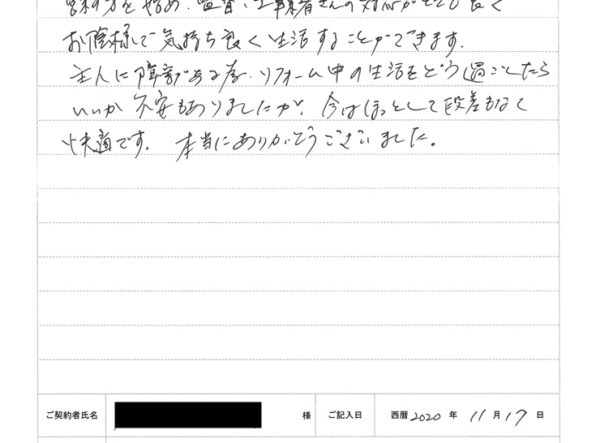 営業の方を始め、監督、工事業者さんの対応がとても良く
お陰様で気持ち良く生活することができます。
主人に障害がある為、リフォーム中の生活をどう過ごしたら
いいか不安もありましたが、今はほっとして段差もなく
快適です。本当にありがとうございました。
ご契約者氏名 様 ご記入日 西暦 2020 年 11 月 17 日